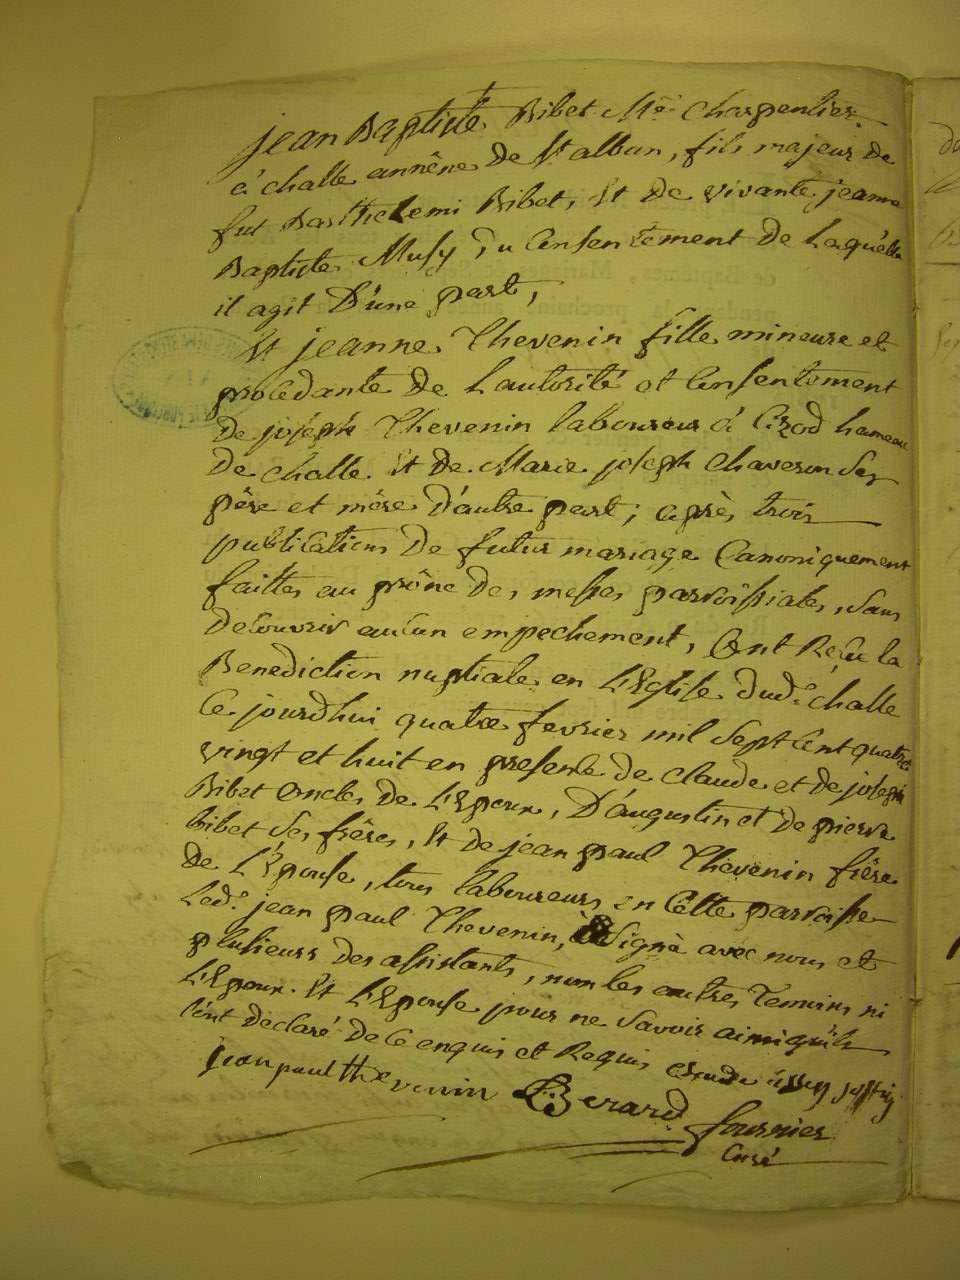 jean Baptiste Bibet Mᵉ Charpentier
à challe annêne de St alban, fils majeur de
fut Barthelemi Bibet, Et de vivante jeanne
Baptiste Musy Du Consentement de Laquelle
il agit D'une part,
Et jeanne Thevenin fille mineure et
procedante de Lautorité et Consentement
De joseph Thevenin laboureur à Cizod hameau
De challe Et de Marie joseph Chaveron Ses
père et mère D'autre part; après trois
publications De futur mariage Canoniquement
faittes au prône Des messes parroissiales, Sans
Decouvrir aucun empechement, Ont Reçu la
Benediction nuptiale en L'Eglise Dudᵗ challe
Ce jourdhui quatre fevrier mil Sept Cent quatre
vingt et huit en presence de claude et de joseph
Bibet oncles De L'Epoux, D'augustin et De pierre
bibet Ses frères, Et de jean paul Thevenin frère
De L'Epouse, tous laboureurs en Cette parroisse
Ledᵗ jean paul Thevenin, à Signé avec nous et
plusieurs Des assistants, non les autres Temoins ni
L'Epoux Et L'Epouse pour ne Savoir ainsi qu'ils
l'ont declaré De Ce enquis et Requis
jean paul thevenin Berard
fournier
Curé